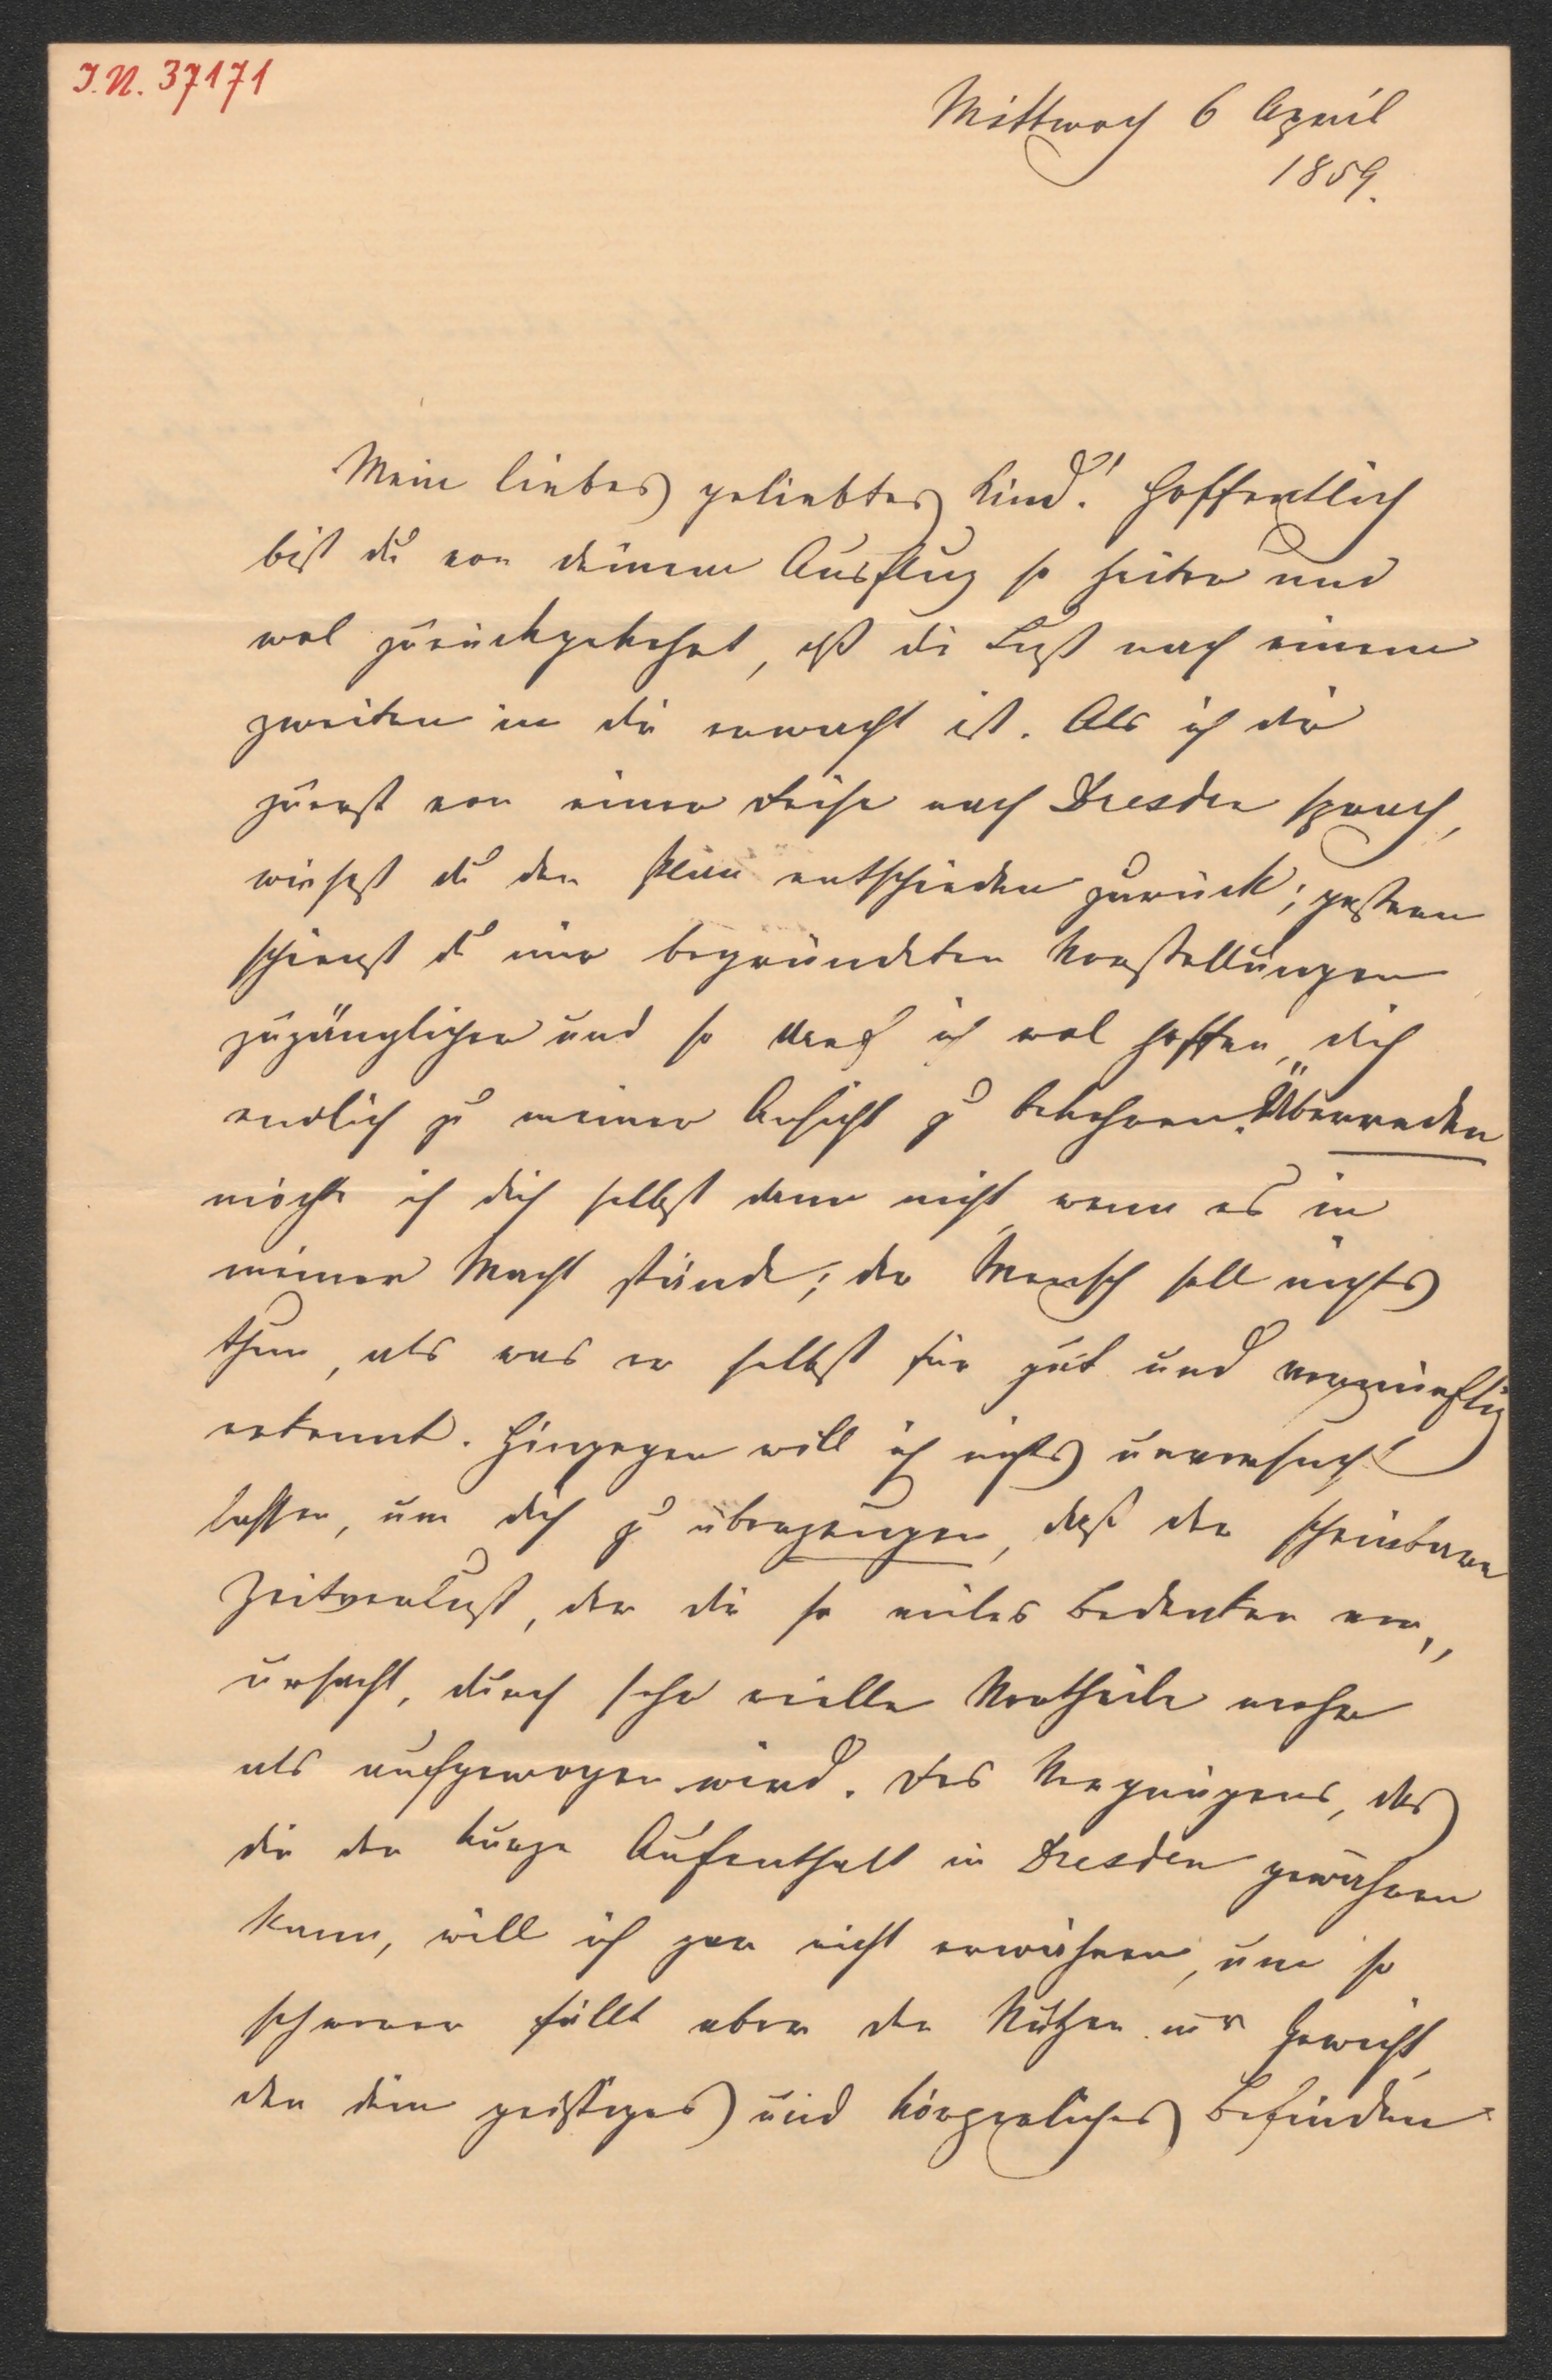 I.N. 37171
Mittwoch 6 April
1859.
Mein liebes geliebtes Kind! Hoffentlich
bist du von deinem Ausflug so heiter und
wol zurückgekehrt, dß die Lust nach einem
zweiten in dir erwacht ist. Als ich dir
zuerst von einer Reise nach Dresden sprach,
wiesest du den Plan entschieden zurück; gestern
schienst du mir begründeten Vorstellungen
zugänglicher und so darf ich wol hoffen, dich
endlich zu meiner Ansicht zu bekehren. Überreden
möchte ich dich selbst dann nicht, wenn es in
meiner Macht stünde; der Mensch soll nichts
thun, als was er selbst für gut und vernünftig
erkennt. Hingegen will ich nichts unversucht
lassen, um dich zu überzeugen, daß der scheinbare
Zeitverlust, der dir so vieles Bedenken ver„
ursacht, durch sehr reelle Vortheile mehr
als aufgewogen wird. Des Vergnügens, das
dir der kurze Aufenthalt in Dresden gewähren
kann, will ich gar nicht erwähnen, um so
schwerer fällt aber der Nutzen ins Gewicht,
den dein geistiges und körperliches Befinden